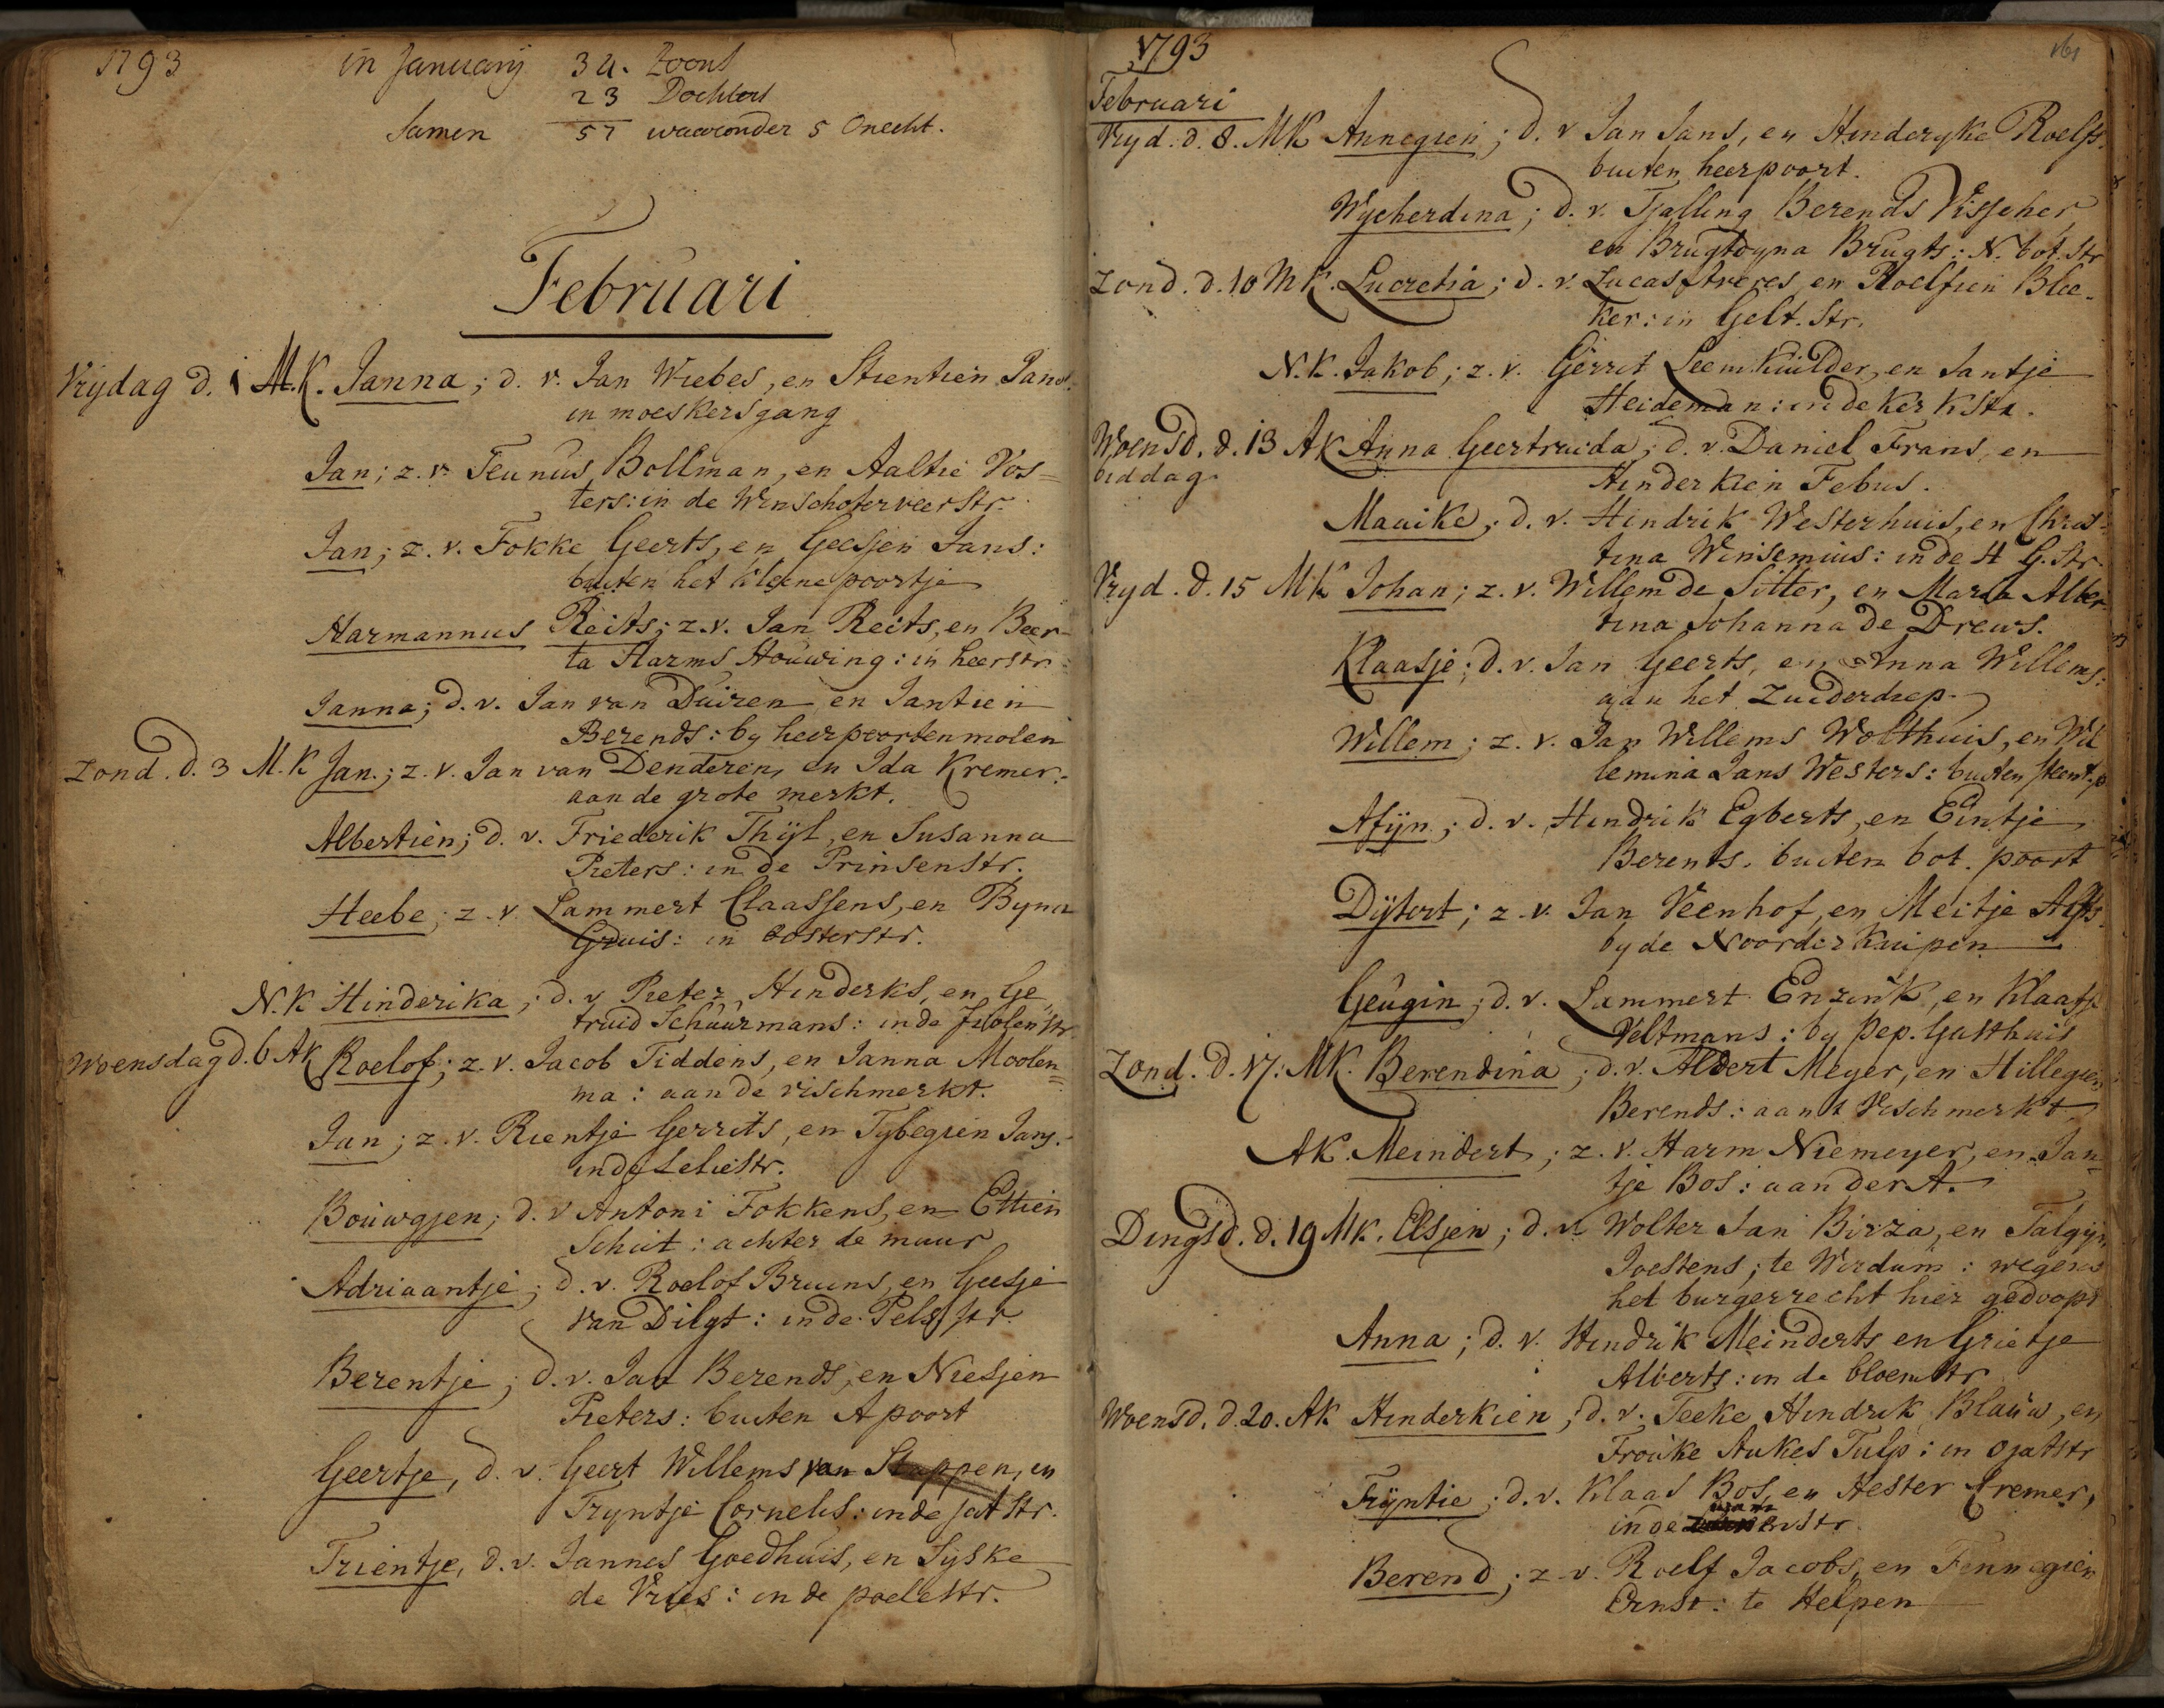 1793 in Januarij 34. Zoons
23 Dochters
Samen 57 waaronder 5 Onecht.
Februari
Vrijdag d. 1 M.K. Janna; d. v. Jan Wiebes, en Stientien Jans:
in moeskersgang
Jan; z. v. Teunus Bollman, en Aaltie Vos=
ters: in de Winschoterveerstr.
Jan; z. v. Fokke Geerts, en Geesjen Jans:
buiten het kleine poortje
Harmannus Reits; z. v. Jan Reits, en Beer-
ta Harms Houwing: in heerstr.
Janna; d. v. Jan van Duiren en Jantien
Berends: by heerpoortenmolen
Zond. d. 3 M.K Jan; z. v. Jan van Denderen, en Ida Kremer:
aan de grote merkt.
Albertien; d. v. Friederik Thijl, en Susanna
Pieters: in de Prinsenstr.
Heebe; z. v. Lammert Claassens, en Byna
Gruis: in Oosterstr.
N.K Hinderika; d. v. Pieter Hinderks, en Ge
truid Schuurmans: in de str.
Woensdag d. 6 AK Roelof; z. v. Jacob Tiddens, en Janna Moolen=
ma: aan de vischmerkt.
Jan; z. v. Rientje Gerrits, en Tybegien Jans:
in de Leliestr.
Bouwgjen; d. v Antoni Fokkens, en Ettien
Schuit: achter de muur
Adriaantje; d. v. Roelof Bruins, en Geesje
van Dilgt: in de Pelsstr.
Berentje; d. v. Jan Berends, en Niesjen
Pieters: buiten A poort
Geertje, d. v. Geert Willems van Stappen, en
Tryntje Cornelis: in de Jatstr.
Trientje, d. v. Jannes Goedhuis, en Sijske
de Vries: in de poelestr.
1793 161
Februari
Vryd. d. 8. MK Annegien; d. v Jan Jans, en Hinderyke Roelfs.
buiten heerpoort.
Wycherdina; d. v. Tjalling Berends Visscher
en Brugtdyna Brugts: N. bot. str
Zond. d. 10 MK. Lucretia; d. v. Lucas Areces, en Roelfien Blee-
ker: in Gelt. Str.
N.K. Jakob; z. v. Gerrit Leemkuilder, en Jantje
Heideman: in de kerkstr.
Woensd. d. 13 AK Anna Geertruida; d. v. Daniel Frans, en
biddag Hinderkien Febus.
Maaike; d. v. Hindrik Westerhuis, en Chris-
tina Winsemius: in de H G. Str.
Vryd. d. 15 MK Johan; z. v. Willem de Sitter, en Maria Alber
tina Johanna de Drews.
Klaasje; d. v. Jan Geerts, en Anna Willems:
aan het Zuiderdiep
Willem; z. v. Jan Willems Wolthuis, en Wil
lemina Jans Westers: buiten steent. p
Afijn; d. v. Hindrik Egberts, en Eintje
Berents. buiten bot. poort
Dijtert; z. v. Jan Veenhof, en Meitje Alfts
by de Noorder Kuipen
Geugin; d. v. Lammert Enzink, en Klaasje
Veltmans: by Pep. Gasthuis
Zond. d. 17. MK. Berendina; d. v. Aldert Meyer, en Hillegien
Berends: aan t Vischmerkt
AK. Meindert; z. v. Harm Niemeyer, en Jan=
tje Bos: aan der A.
Dingsd. d. 19 MK. Elsjen; d. v Wolter Jan Birza, en Talgijn
Joestens; te Wirdum: wegens
het burgerrecht hier gedoopt
Anna; d. v. Hindrik Meinderts en Grietje
Alberts: in de bloemstr
Woensd. d. 20. AK Hinderkien; d. v. Teeke Hindrik Blauw, en
Frouke Aukes Tulp: in Ojatstr
Trijntie; d. v. Klaas Bos, en Hester Cremer,
in de str.
Berend; z. v. Roelf Jacobs, en Fennegien
Ernst: te Helpen